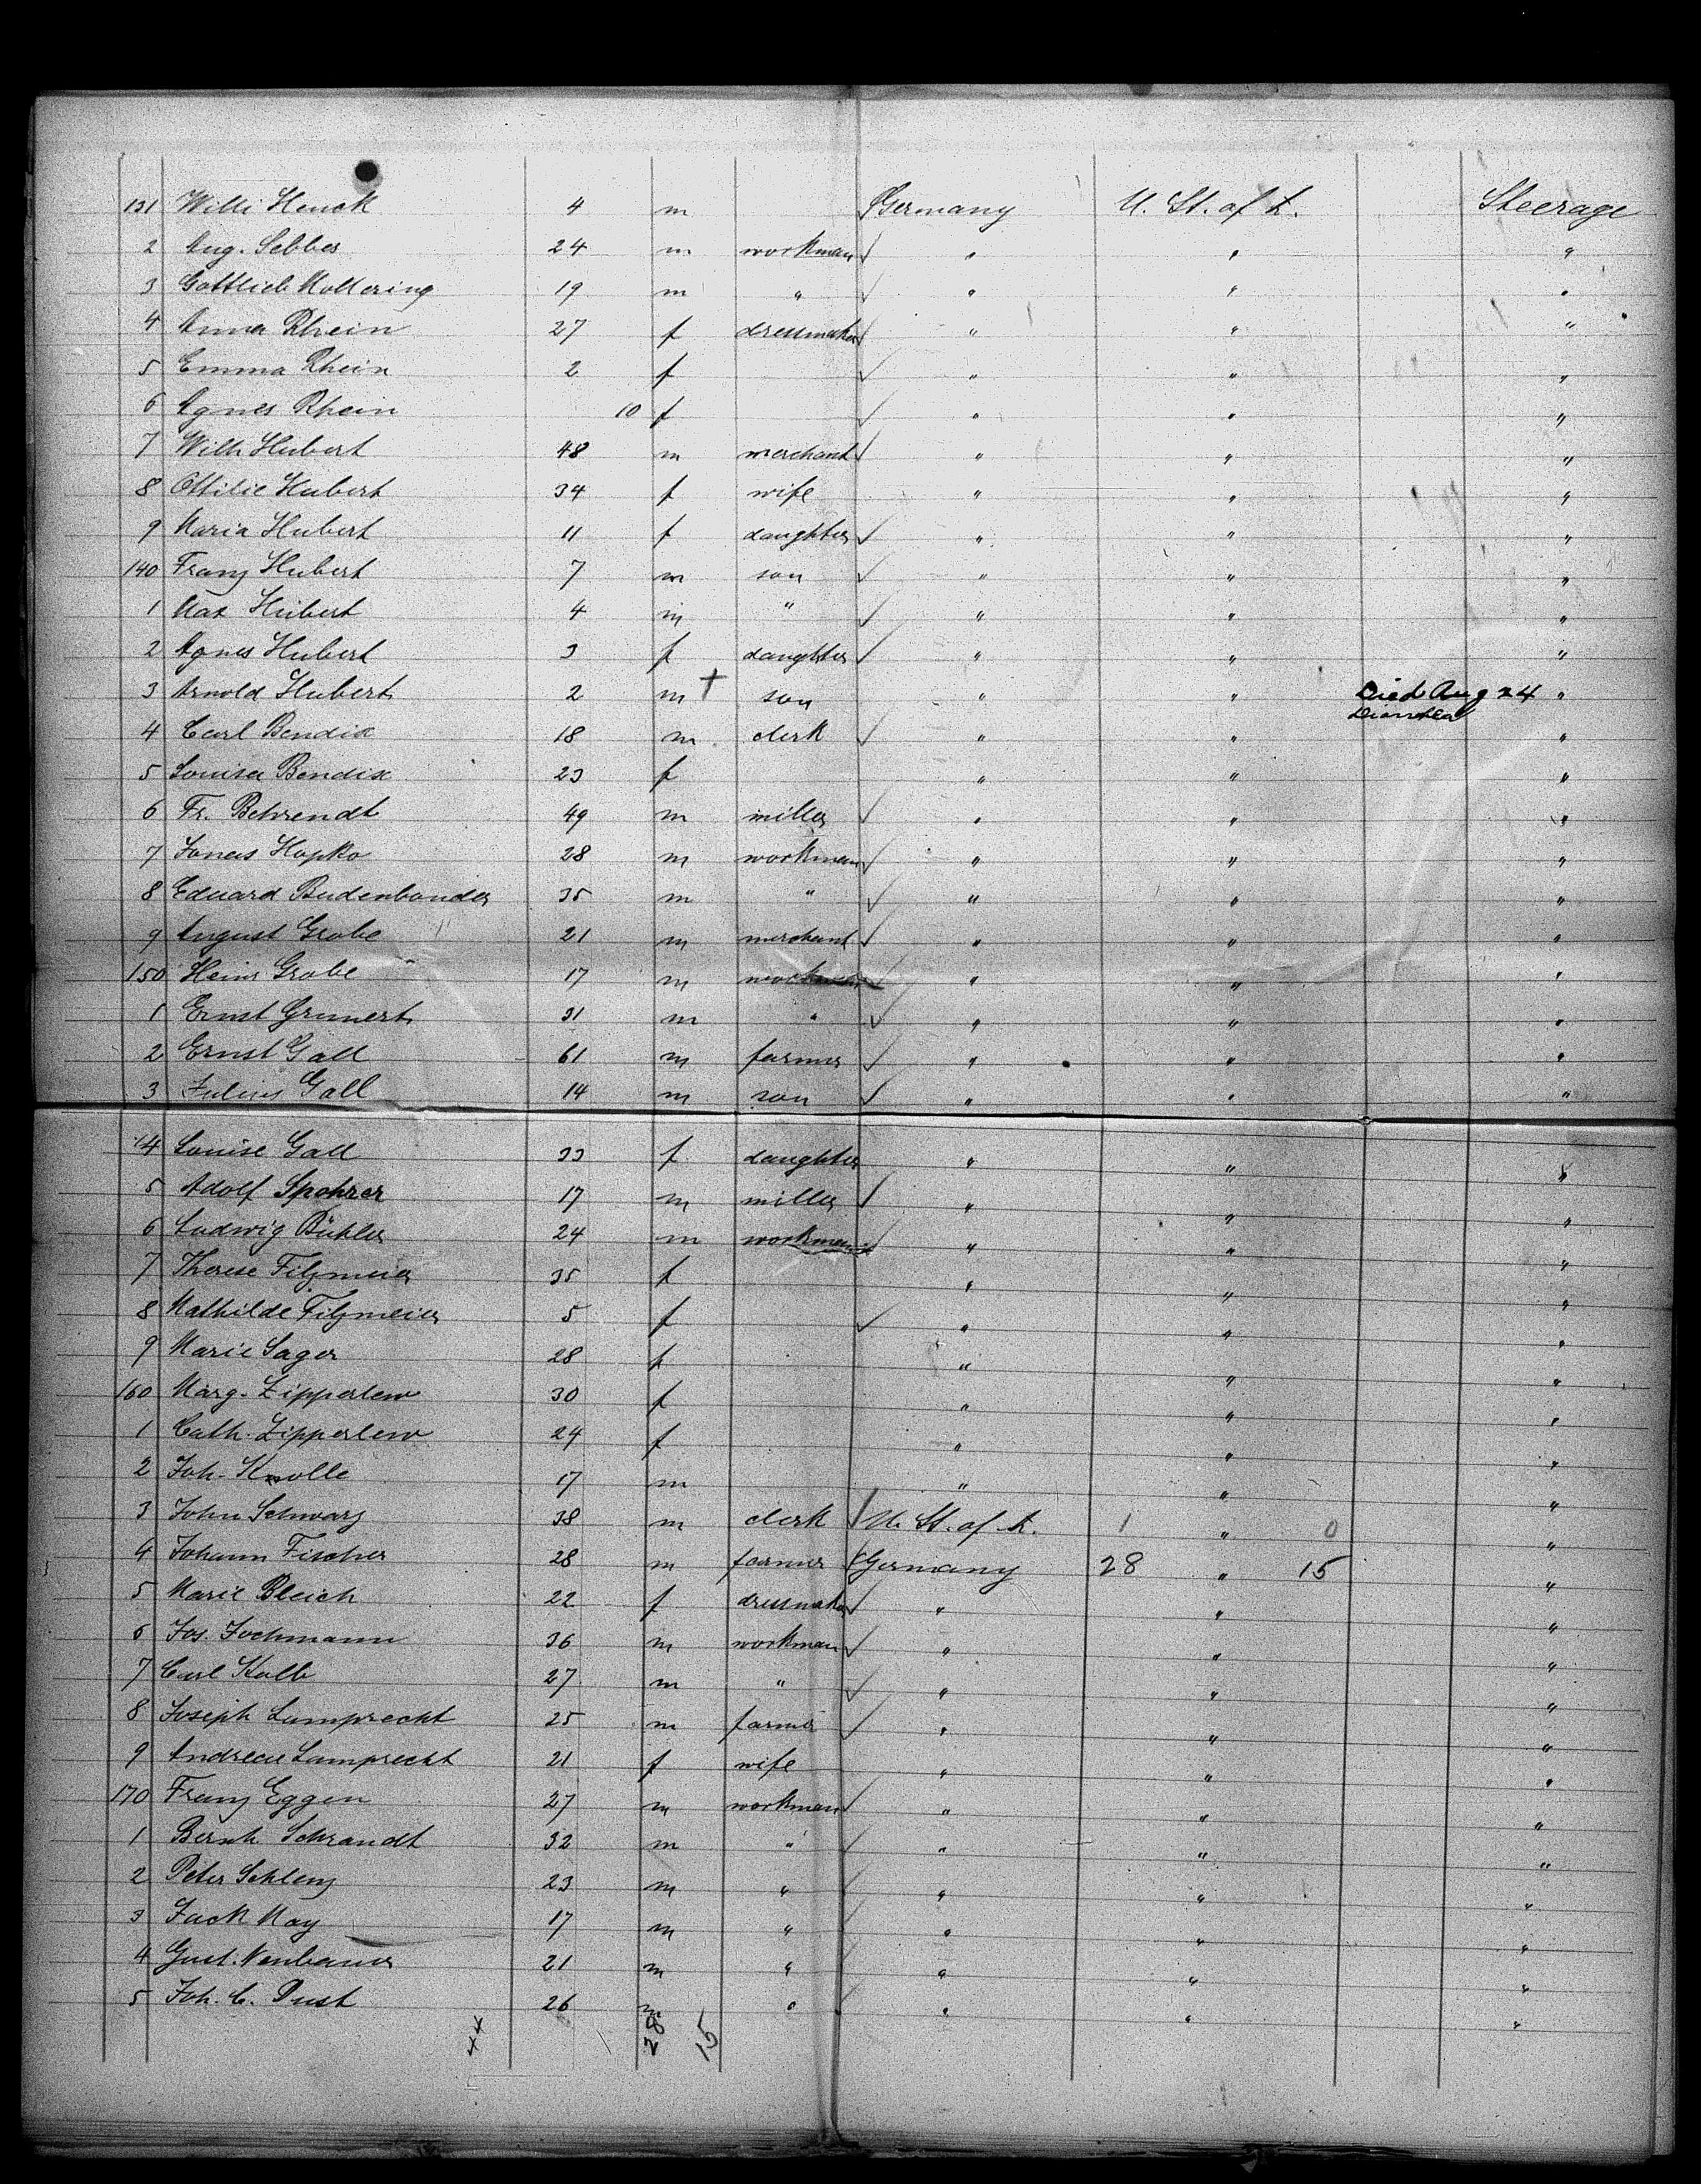 131 Willi Henck 4 m Germany U. St. of A. Steerage
2 Aug. Sebbes 24 m workman " " "
3 Gottlieb Mollering 19 m " " " "
4 Anna Rhein 27 f dressmaker " " "
5 Emma Rhein 2 f " " "
6 Agnes Rhein 10 f " " "
7 Wilh Hubert 48 m merchant " " "
8 Ottilie Hubert 34 f wife " " "
9 Maria Hubert 11 f daughter " " "
140 Franz Hubert 7 m son " " "
1 Max Hubert 4 m " " " "
2 Agnes Hubert 3 f daughter " " "
3 Arnold Hubert 2 m † son " " Died Aug 24 "
Diarrhea
4 Carl Bendix 18 m clerk " " "
5 Louisa Bendix 23 f " " "
6 Fr. Behrendt 49 m miller " " "
7 Jonas Hopko 28 m workman " " "
8 Eduard Budenbonder 35 m " " " "
9 August Grobe 21 m merchant " " "
150 Heinr Grobe 17 m workman " " "
1 Ernst Grunert 31 m " " " "
2 Ernst Gall 61 m farmer " " "
3 Julius Gall 14 m son " " "
4 Louise Gall 33 f daughter " " "
5 Adolf Spohrer 17 m miller " " "
6 Ludwig Bühler 24 m workman " " "
7 Therese Filzmeier 35 f " " "
8 Mathilde Filzmeier 5 f " " "
9 Marie Sager 28 f " " "
160 Marg. Zipperlew 30 f " " "
1 Cath. Zipperlew 24 f " " "
2 Joh. Knolle 17 m " " "
3 John Schwarz 38 m clerk U. St. of A. 1 " 0 "
4 Johann Fischer 28 m farmer Germany 28 " 15 "
5 Marie Bleich 22 f dressmaker " " "
6 Jos. Jochmann 36 m workman " " "
7 Carl Kolb 27 m " " " "
8 Joseph Lamprecht 25 m farmer " " "
9 Andreae Lamprecht 21 f wife " " "
170 Franz Eggen 27 m workman " " "
1 Bernh Schrandt 32 m " " " "
2 Peter Schlenz 23 m " " " "
3 Jack May 17 m " " " "
4 Gust. Neubauer 21 m " " " "
5 Joh. C. Dust 26 m " " " "
44 28 15